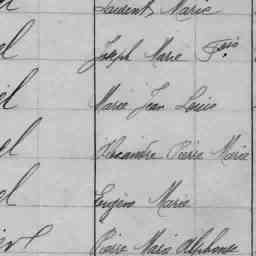 Laurent Marie
Joseph Marie Fois
Marie Jean Louis
Alexandre Pierre Marie
Eugène Marie
Pierre Marie Alphonse